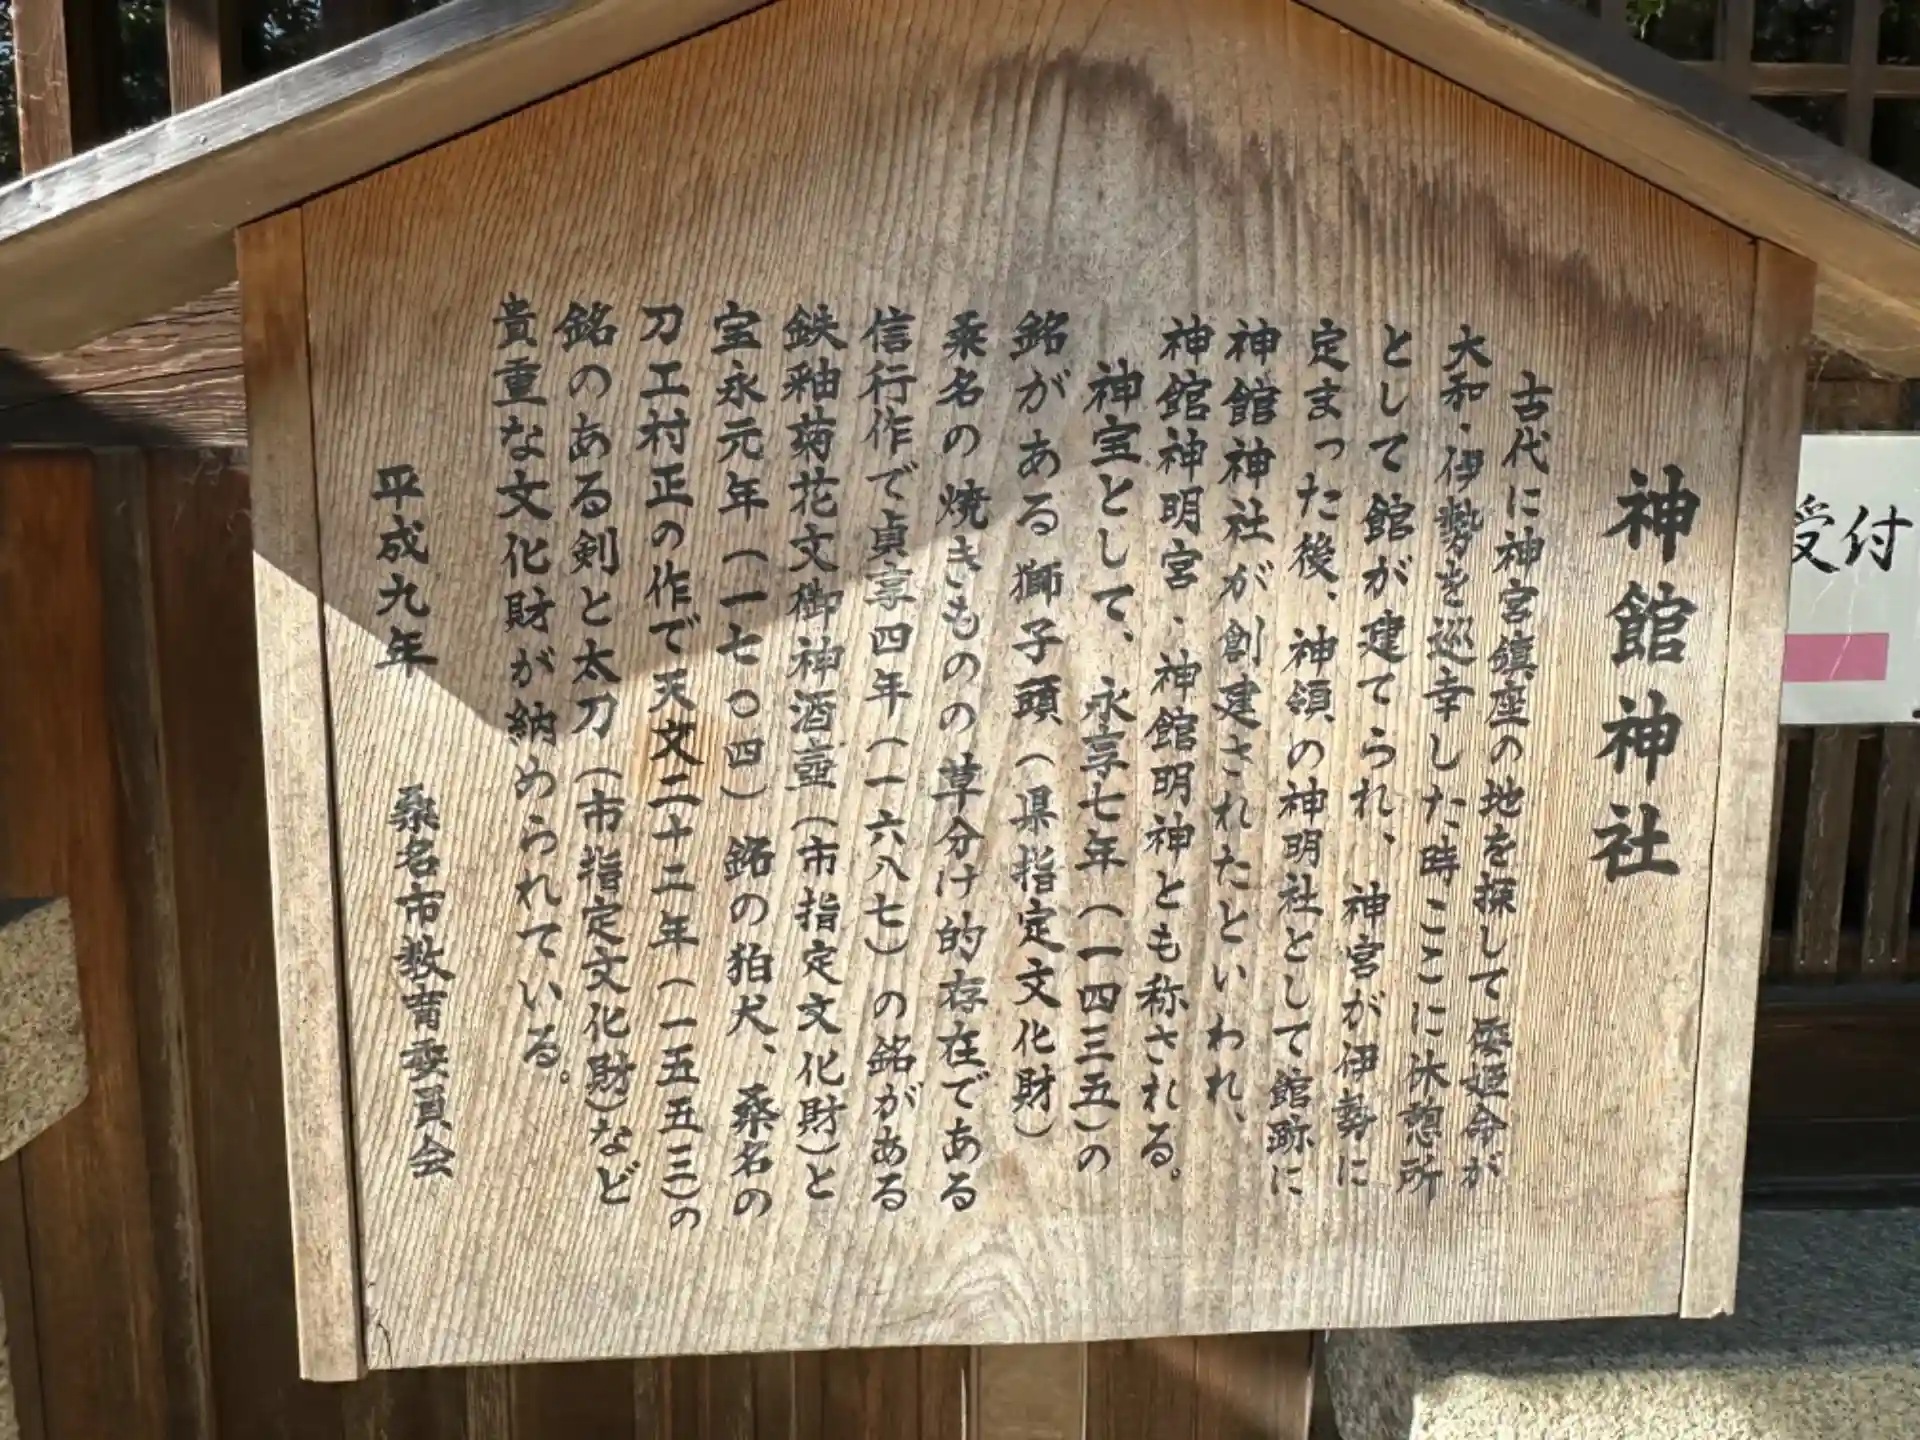 神館神社
古代に神宮鎮座の地を探して倭姫命が
大和・伊勢を巡幸した時ここに休憩所
として館が建てられ、神宮が伊勢に
定まった後、神領の神明社として館跡に
神館神社が創建されたといわれ、
神館神明宮、神館明神とも称される。
神宝として、永享七年（一四三五）の
銘がある獅子頭（県指定文化財）
桑名の焼きものの草分け的存在である
信行作で貞享四年（一六八七）の銘がある
鉄釉菊花文御神酒壷（市指定文化財）と
宝永元年（一七〇四）銘の狛犬、桑名の
刀工村正の作で天文二十二年（一五五三）の
銘のある剣と太刀（市指定文化財）など
貴重な文化財が納められている。
平成九年
桑名市教育委員会
受付